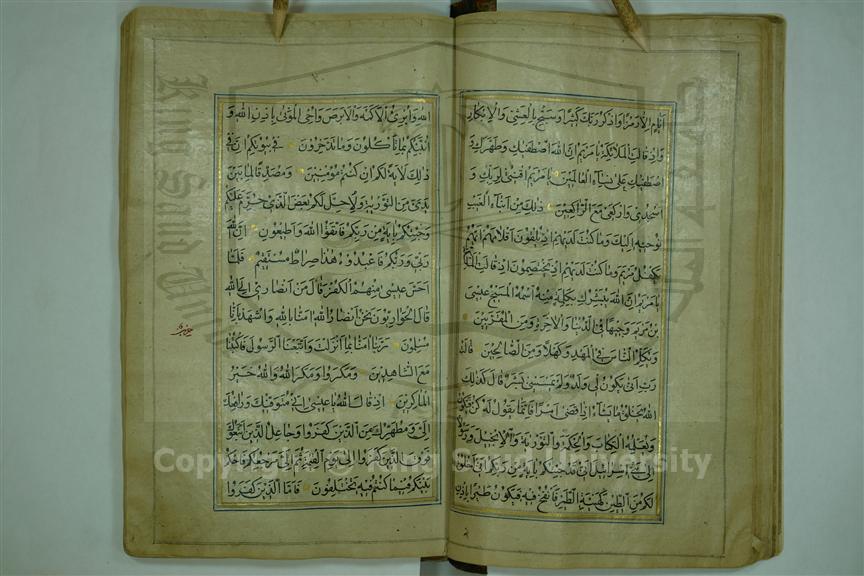 ايام الا رمزا واذكر ربك كثيرا وسبح بالعشي والابكار
واذ قالت الملائكة يا مريم ان الله اصطفيك وطهرك و
اصطفيك على نساء العالمين يا مريم اقنتي لربك و
اسجدي واركعي مع الراكعين ذلك من انباء الغيب
نوحيه اليك وما كنت لديهم اذ يلقون اقلامهم ايهم
يكفل مريم وما كنت لديهم اذ يختصمون اذ قالت الملائكة
يا مريم ان الله يبشرك بكلمة منه اسمه المسيح عيسى
بن مريم وجيها في الدنيا والاخرة ومن المقربين
ويكلم الناس في المهد وكهلا ومن الصالحين قالت
رب انى يكون لي ولد ولم يمسسني بشر قال كذلك
الله يخلق ما يشاء اذا قضى امرا فانما يقول له كن فيكون
ويعلمه الكتاب والحكمة والتورية والانجيل ورسولا
الى بني اسرائيل اني قد جئتكم باية من ربكم اني اخلق
لكم من الطين كهيئة الطير فانفخ فيه فيكون طيرا باذن
الله وابرئ الاكمه والابرص واحي الموتى باذن الله و
انبئكم بما تاكلون وما تدخرون في بيوتكم ان في
ذلك لاية لكم ان كنتم مؤمنين ومصدقا لما بين
يدي من التورية ولاحل لكم بعض الذي حرم عليكم
وجئتكم باية من ربكم فاتقوا الله واطيعون ان الله
ربي وربكم فاعبدوه هذا صراط مستقيم فلما
احس عيسى منهم الكفر قال من انصاري الى الله
قال الحواريون نحن انصار الله امنا بالله واشهد بانا
مسلمون ربنا امنا بما انزلت واتبعنا الرسول فاكتبنا
مع الشاهدين ومكروا ومكر الله والله خير
الماكرين اذ قال الله يا عيسى اني متوفيك ورافعك
الي ومطهرك من الذين كفروا وجاعل الذين اتبعوك
فوق الذين كفروا الى يوم القيمة ثم الي مرجعكم فاحكم
بينكم فيما كنتم فيه تختلفون فاما الذين كفروا
King Saud University
Copyright © King Saud University